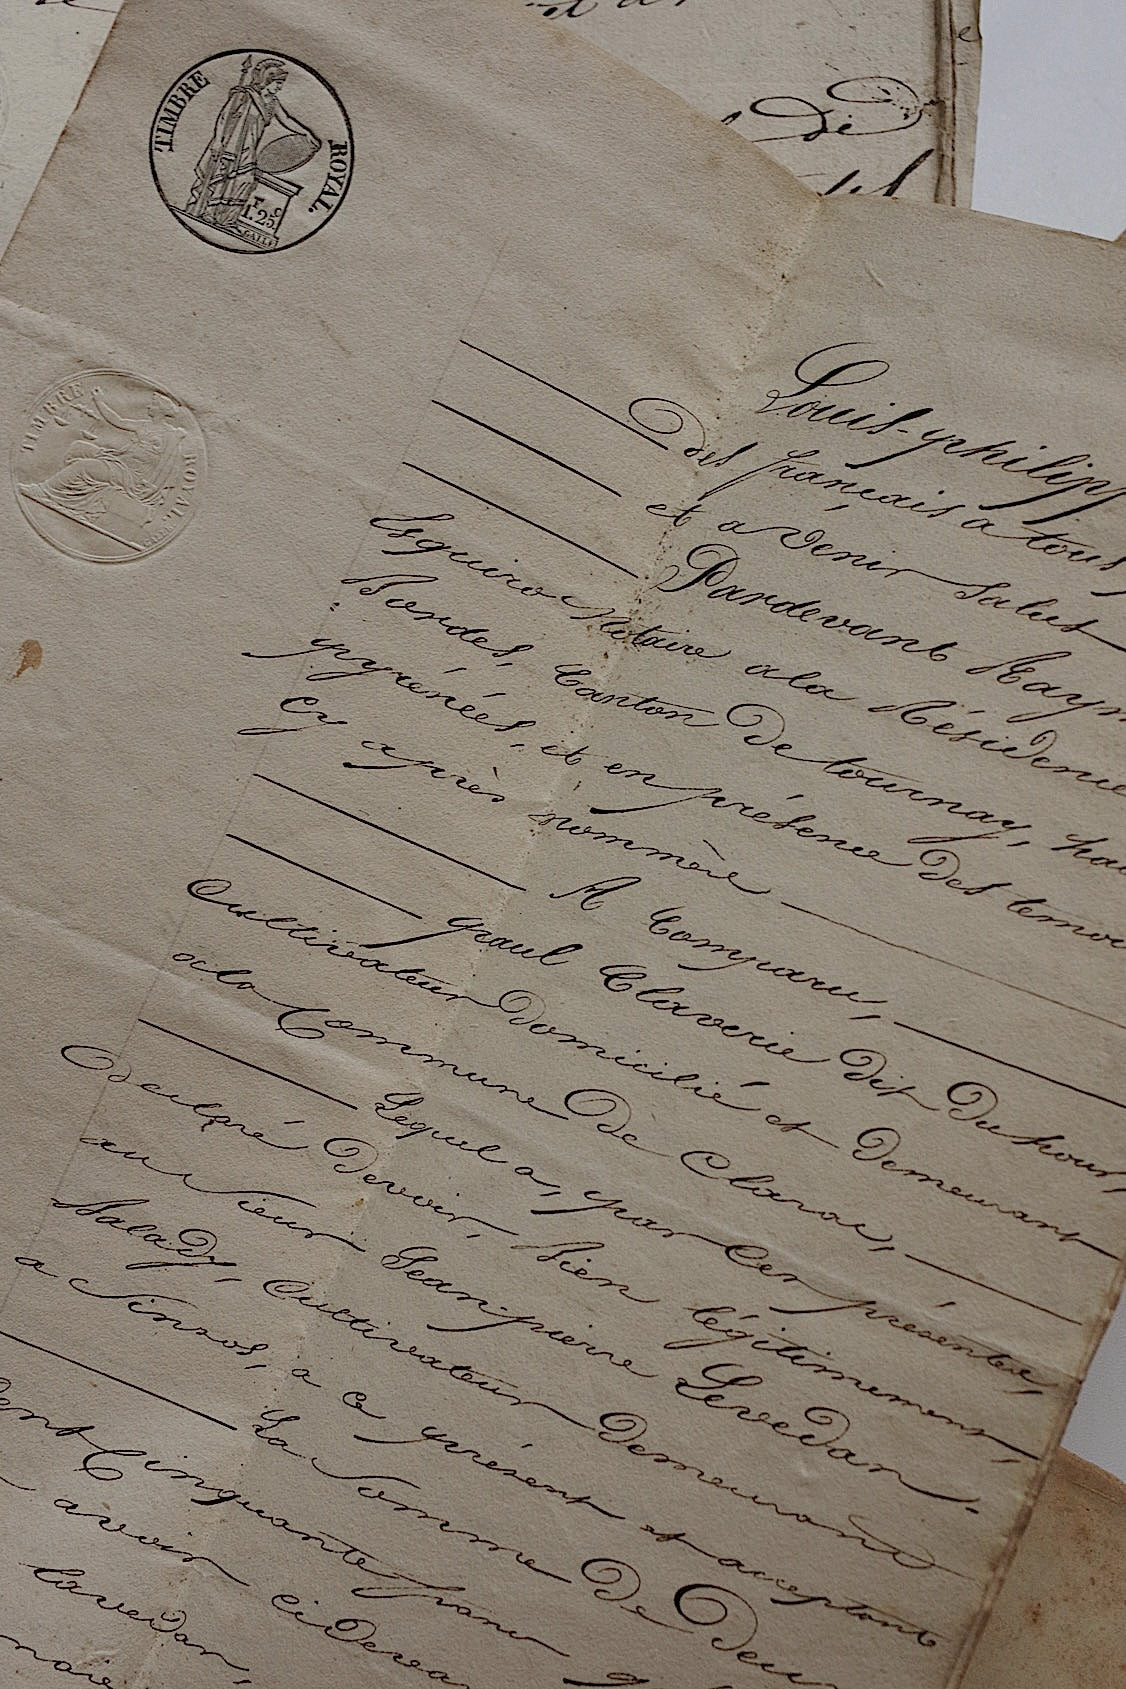 TIMBRE ROYAL.
1.F 25.c
TIMBRE ROYAL.
De
Louis-philipp
des français a tous
et a venir Salut
Pardevant Raym
Esquiro Notaire a la Résidence
Bordes, Canton De tournay, hau
pyrénées, et en présence Des temoi
Cy après nommés
A Comparu,
paul Claverie Dit Duhour,
Cultivateur Domicilié et Demeurant
a la Commune De Clarac,
Lequel a, par Ces présentes,
Declaré Devoir, bien légitimement,
au Sieur Jean-pierre Lavedan
Malady, Cultivateur Demeurant
a Sinzos, a Ce présent et acceptant
La Somme De Deux
Cinquante franc
avoir Cidevan
lavedan,